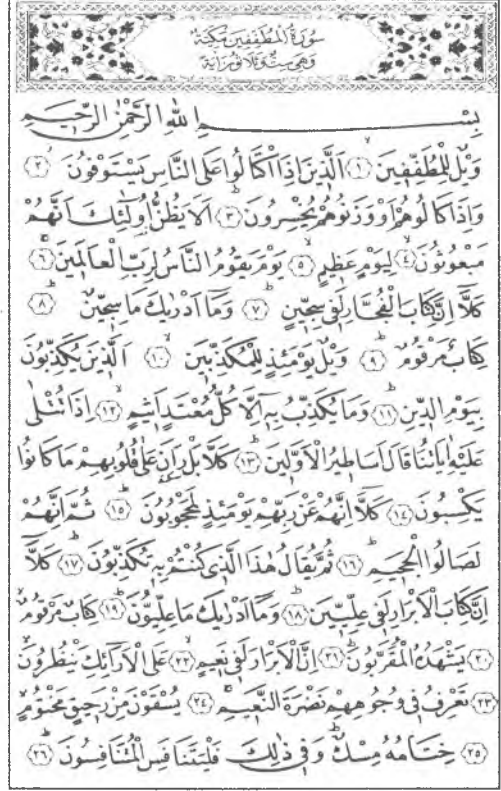 سُورَةُ الْمُطَفِّفِينَ مَكِّيَّةٌ
وَهِيَ سِتٌّ وَثَلَاثُونَ اٰيَةً
بِسْمِ اللهِ الرَّحْمٰنِ الرَّحِيمِ
وَيْلٌ لِلْمُطَفِّفِينَۙ ﴿١﴾ اَلَّذِينَ اِذَا اكْتَالُوا عَلَى النَّاسِ يَسْتَوْفُونَۘ ﴿٢﴾
وَاِذَا كَالُوهُمْ اَوْ وَزَنُوهُمْ يُخْسِرُونَۜ ﴿٣﴾ اَلَا يَظُنُّ اُو۬لٰٓئِكَ اَنَّهُمْ
مَبْعُوثُونَۙ ﴿٤﴾ لِيَوْمٍ عَظِيمٍۙ ﴿٥﴾ يَوْمَ يَقُومُ النَّاسُ لِرَبِّ الْعَالَمِينَۜ ﴿٦﴾
كَلَّٓا اِنَّ كِتَابَ الْفُجَّارِ لَفِي سِجِّينٍۜ ﴿٧﴾ وَمَٓا اَدْرٰيكَ مَا سِجِّينٌۜ ﴿٨﴾
كِتَابٌ مَرْقُومٌۜ ﴿٩﴾ وَيْلٌ يَوْمَئِذٍ لِلْمُكَذِّبِينَۙ ﴿١٠﴾ اَلَّذِينَ يُكَذِّبُونَ
بِيَوْمِ الدِّينِۜ ﴿١١﴾ وَمَا يُكَذِّبُ بِهِٓ اِلَّا كُلُّ مُعْتَدٍ اَثِيمٍۙ ﴿١٢﴾ اِذَا تُتْلٰى
عَلَيْهِ اٰيَاتُنَا قَالَ اَسَاطِيرُ الْاَوَّلِينَۜ ﴿١٣﴾ كَلَّا بَلْ رَانَ عَلٰى قُلُوبِهِمْ مَا كَانُوا
يَكْسِبُونَ ﴿١٤﴾ كَلَّٓا اِنَّهُمْ عَنْ رَبِّهِمْ يَوْمَئِذٍ لَمَحْجُوبُونَۜ ﴿١٥﴾ ثُمَّ اِنَّهُمْ
لَصَالُوا الْجَحِيمِۜ ﴿١٦﴾ ثُمَّ يُقَالُ هٰذَا الَّذِي كُنْتُمْ بِهِ تُكَذِّبُونَۜ ﴿١٧﴾ كَلَّٓا
اِنَّ كِتَابَ الْاَبْرَارِ لَفِي عِلِّيِّينَۜ ﴿١٨﴾ وَمَٓا اَدْرٰيكَ مَا عِلِّيُّونَۜ ﴿١٩﴾ كِتَابٌ مَرْقُومٌۙ
﴿٢٠﴾ يَشْهَدُهُ الْمُقَرَّبُونَۜ ﴿٢١﴾ اِنَّ الْاَبْرَارَ لَفِي نَعِيمٍۙ ﴿٢٢﴾ عَلَى الْاَرَٓائِكِ يَنْظُرُونَۙ
﴿٢٣﴾ تَعْرِفُ فِي وُجُوهِهِمْ نَضْرَةَ النَّعِيمِۚ ﴿٢٤﴾ يُسْقَوْنَ مِنْ رَحِيقٍ مَخْتُومٍۙ
﴿٢٥﴾ خِتَامُهُ مِسْكٌۜ وَفِي ذٰلِكَ فَلْيَتَنَافَسِ الْمُتَنَافِسُونَۜ ﴿٢٦﴾